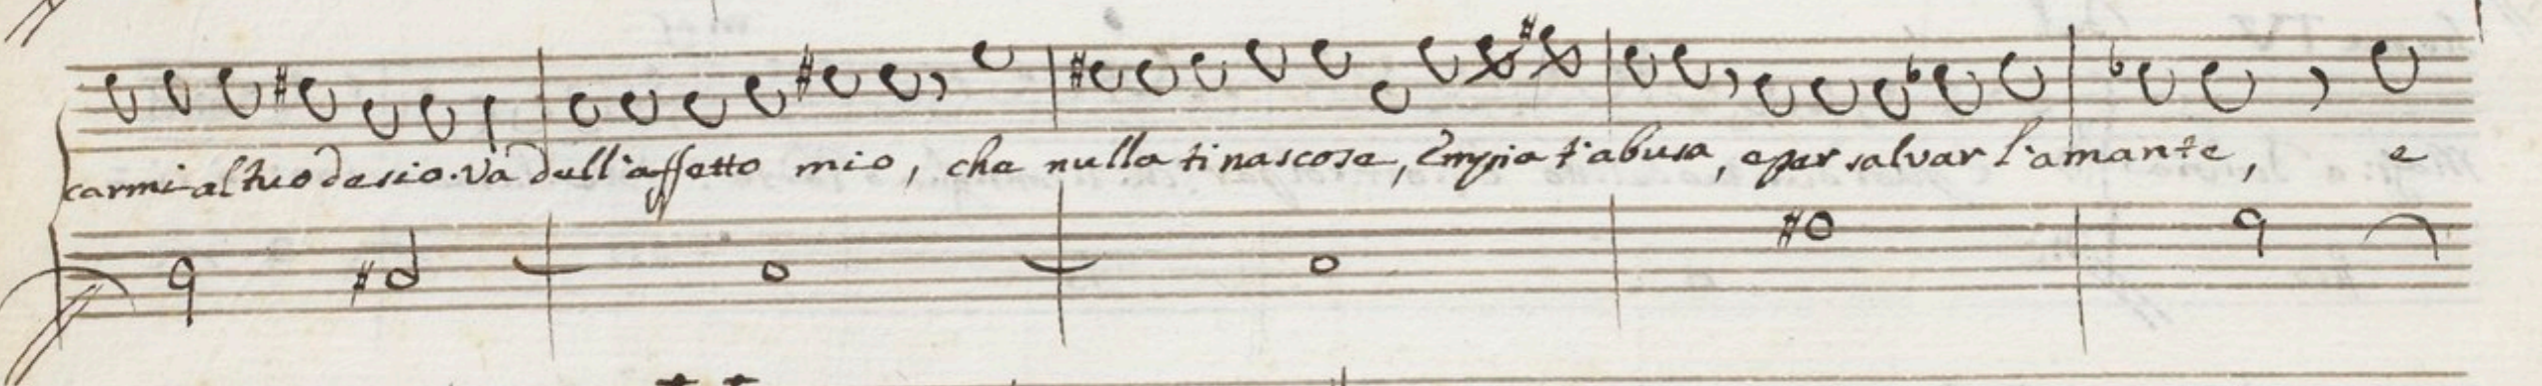 carmi al tuo desio. Và dell'affetto mio, che nulla ti nascose, Empia t'abusa, e per salvar l'amante, e